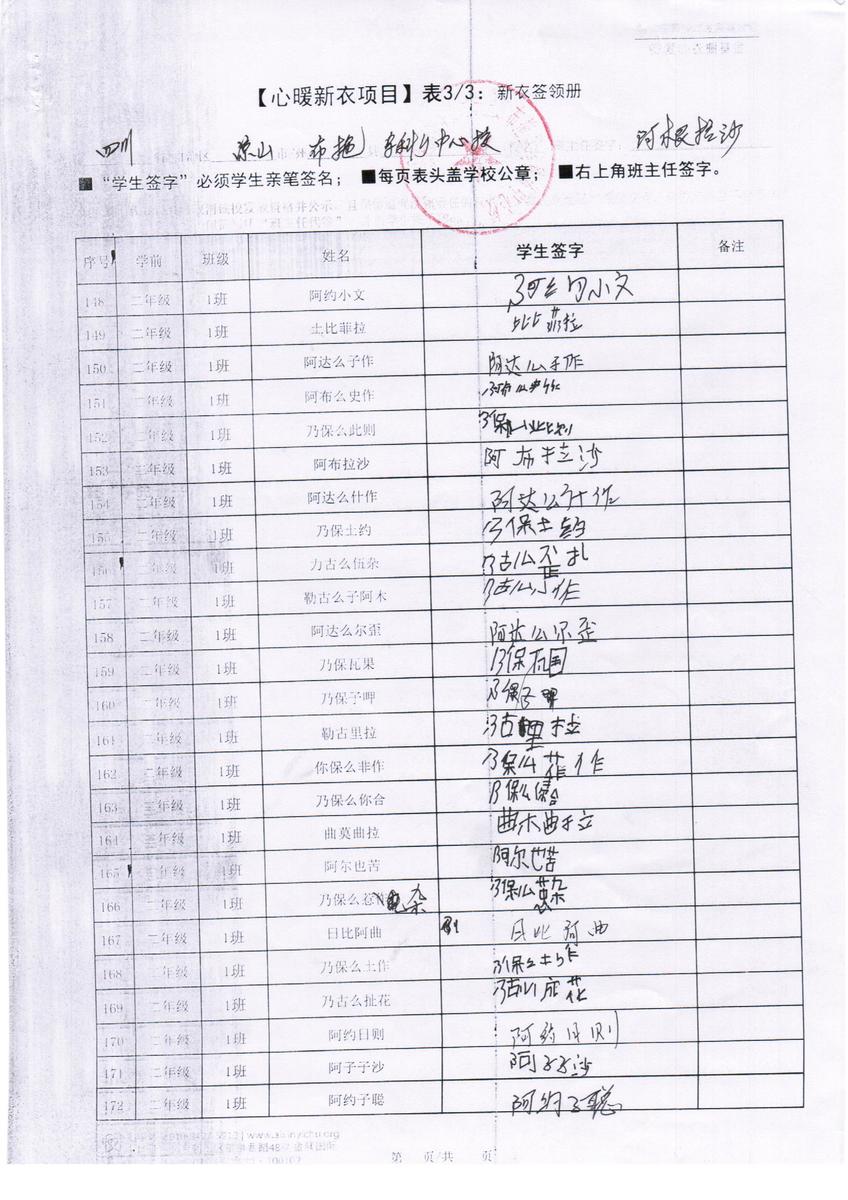 【心暖新衣项目】表3/3：新衣签领册
四川 凉山 布拖 中心校 阿根拉沙
■ “学生签字”必须学生亲笔签名； ■每页表头盖学校公章； ■右上角班主任签字。
序号 学前 班级 姓名 学生签字 备注
148 二年级 1班 阿约小文 阿约小文
149 二年级 1班 土比菲拉 菲拉
150 二年级 1班 阿达么子作 阿达么子作
151 二年级 1班 阿布么史作
152 二年级 1班 乃保么此则 乃保么此则
153 二年级 1班 阿布拉沙 阿布拉沙
154 二年级 1班 阿达么什作 阿达么什作
155 二年级 1班 乃保土约 乃保土约
156 二年级 1班 力古么伍杂
157 二年级 1班 勒古么子阿木
158 二年级 1班 阿达么尔歪 阿达么尔歪
159 二年级 1班 乃保瓦果 乃保瓦国
160 二年级 1班 乃保子呷 乃保子呷
161 二年级 1班 勒古里拉 古里拉
162 二年级 1班 你保么非作 乃保么菲作
163 二年级 1班 乃保么你合 乃保么
164 二年级 1班 曲莫曲拉 曲木曲拉
165 二年级 1班 阿尔也苦 阿尔也苦
166 二年级 1班 乃保么惹 杂 乃保么
167 二年级 1班 日比阿曲 日比阿曲
168 二年级 1班 乃保么土作 乃保么土作
169 二年级 1班 乃古么扯花 花
170 二年级 1班 阿约日则 阿约日则
171 二年级 1班 阿子子沙 阿子子沙
172 二年级 1班 阿约子聪 阿约子聪
第 页/共 页